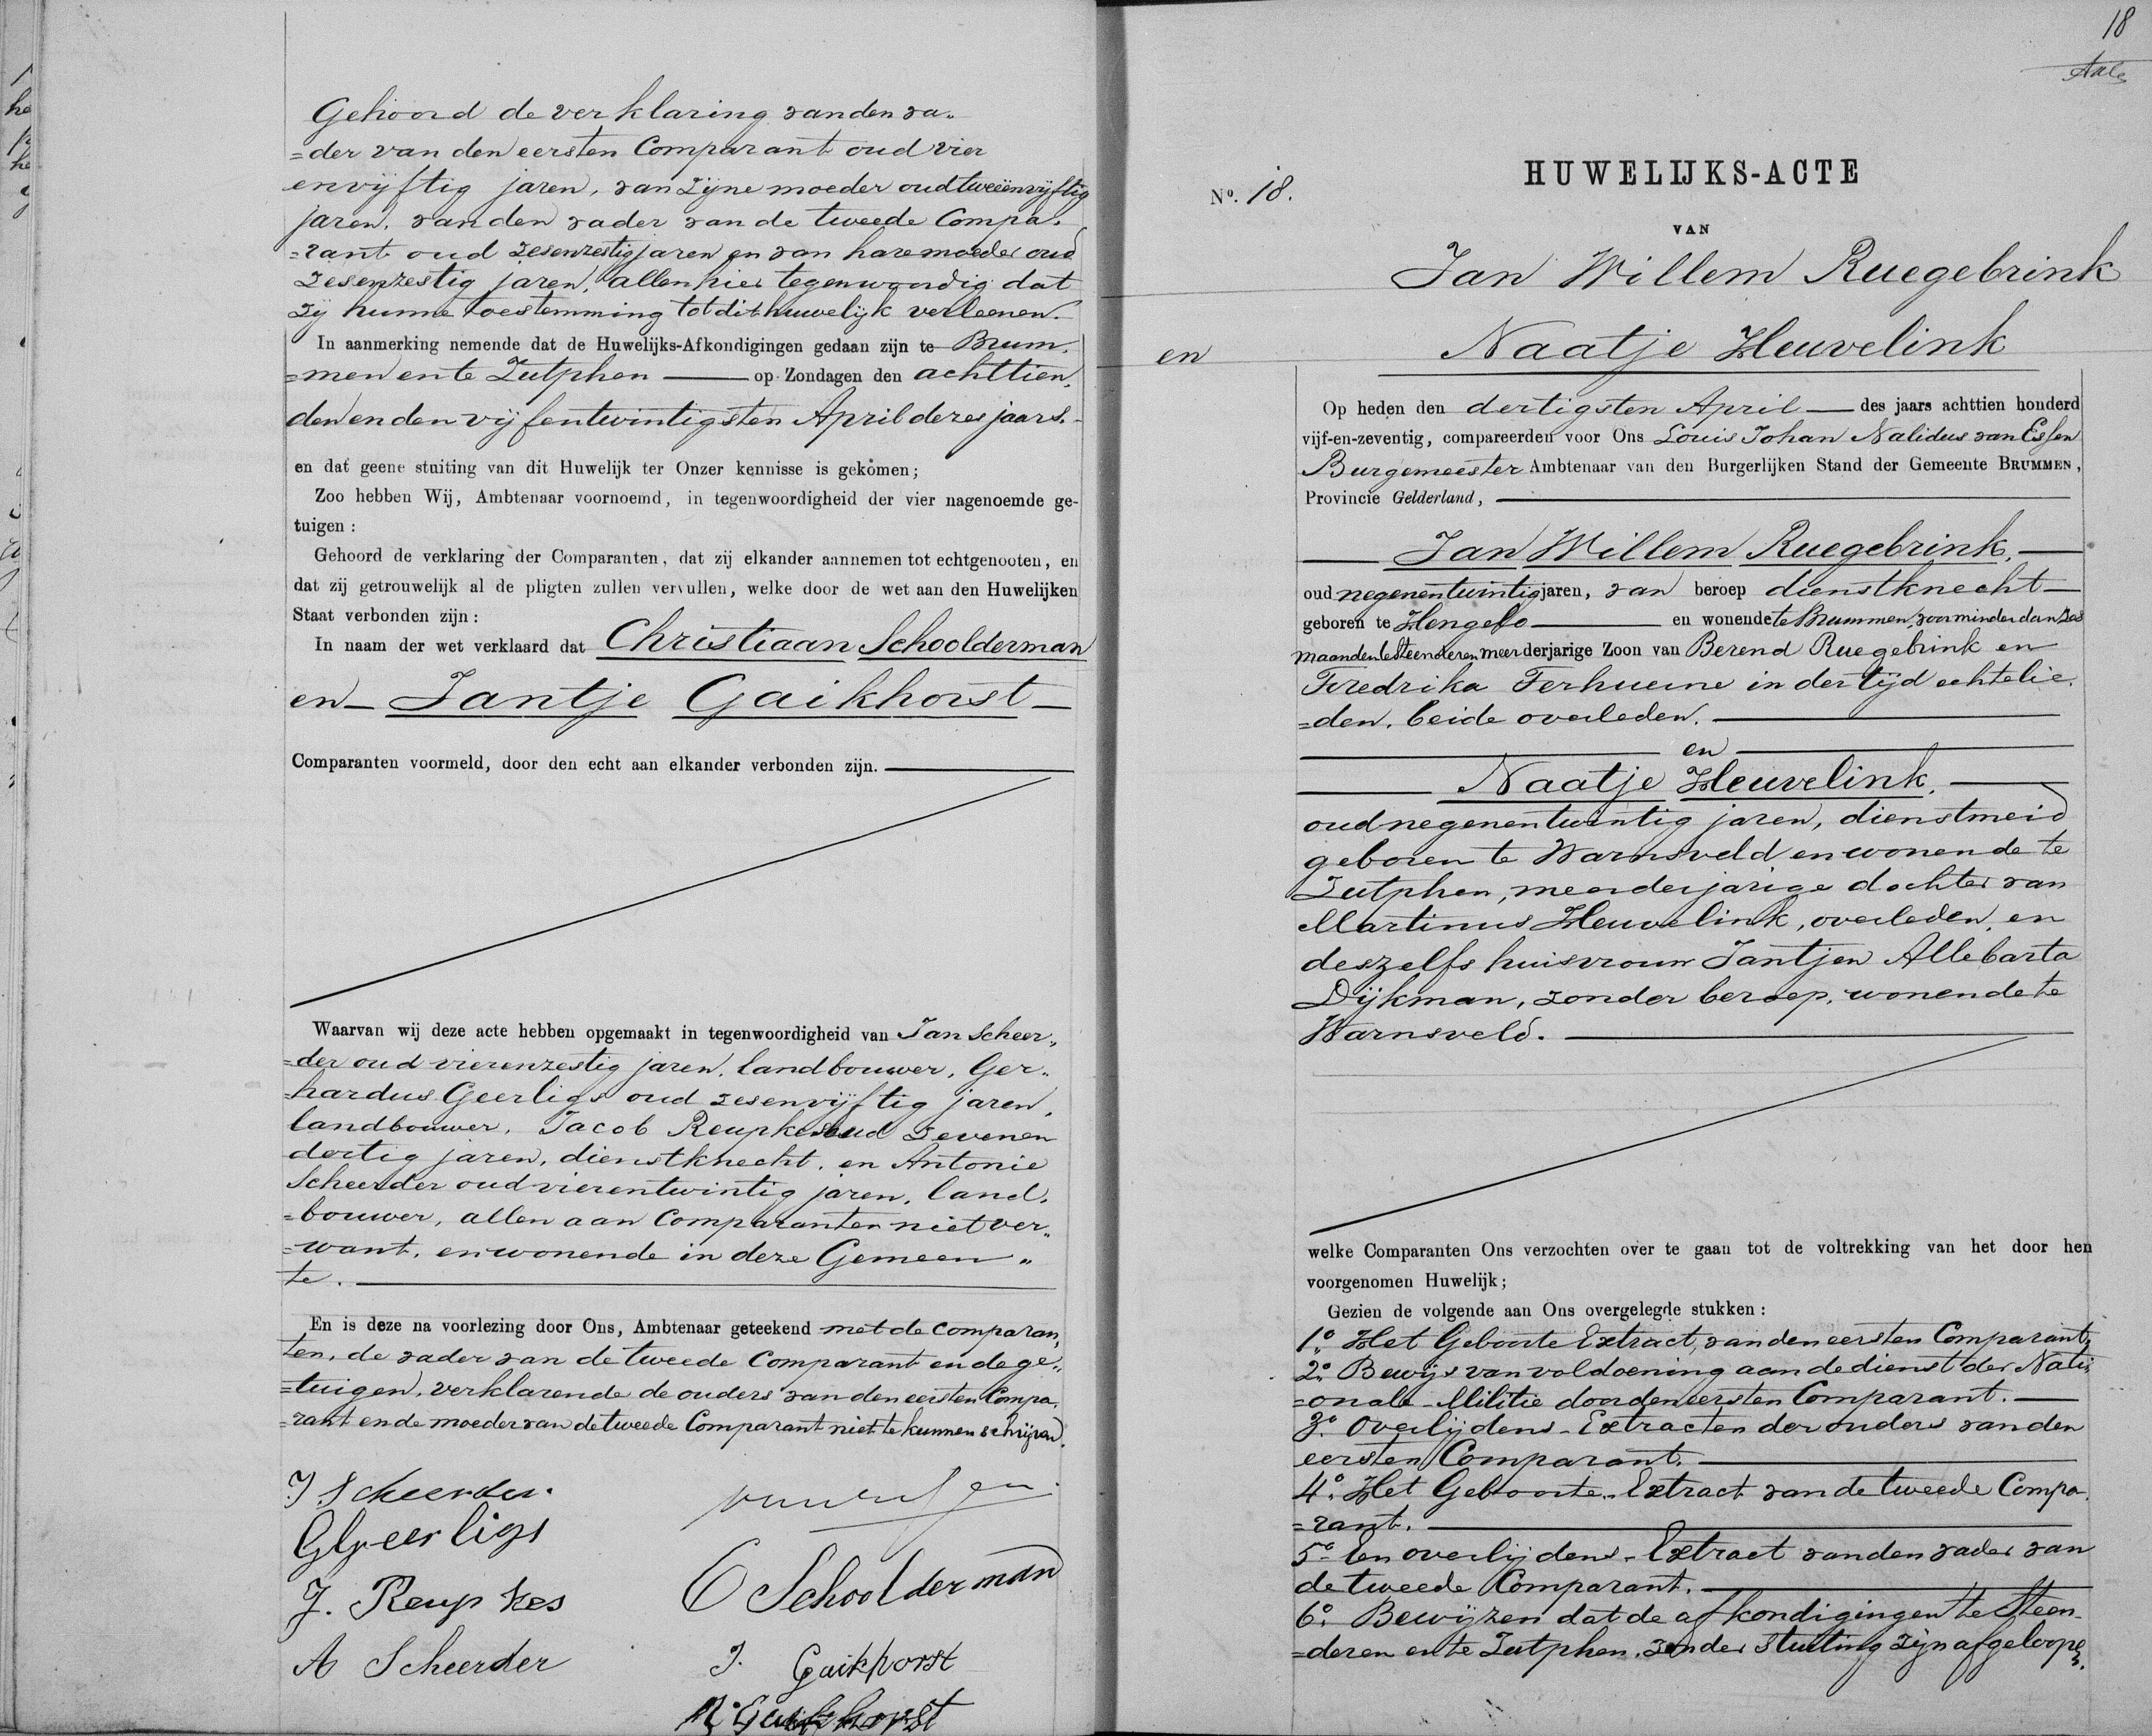 Gehoord de verklaring van den va„
=der van den eersten Comparant oud vier
envijftig jaren, van zijne moeder oud tweeënvijftig
jaren, van den vader van de tweede Compa„
=rant oud zesenzestig jaren en van hare moeder oud
zesenzestig jaren, allen hier tegenwoordig dat
zij hunne toestemming tot dit huwelijk verleenen.
In aanmerking nemende dat de Huwelijks-Afkondigingen gedaan zijn te Brum„
=men en te Zutphen — op Zondagen den achttien„
den en den vijfentwintigsten April dezes jaars.
en dat geene stuiting van dit Huwelijk ter Onzer kennisse is gekomen;
Zoo hebben Wij, Ambtenaar voornoemd, in tegenwoordigheid der vier nagenoemde ge-
tuigen:
Gehoord de verklaring der Comparanten, dat zij elkander aannemen tot echtgenooten, en
dat zij getrouwelijk al de pligten zullen vervullen, welke door de wet aan den Huwelijken
Staat verbonden zijn:
In naam der wet verklaard dat Christiaan Schoolderman
en — Jantje Gaikhorst —
Comparanten voormeld, door den echt aan elkander verbonden zijn. —
Waarvan wij deze acte hebben opgemaakt in tegenwoordigheid van Jan Scheer„
=der oud vierenzestig jaren, landbouwer, Ger„
=hardus Geerligs oud zesenvijftig jaren,
landbouwer, Jacob Reupkes oud zevenen
dertig jaren, dienstknecht, en Antonie
Scheerder oud vierentwintig jaren, land„
=bouwer, allen aan Comparanten niet ver„
=want, en wonende in deze Gemeen„
te. —
En is deze na voorlezing door Ons, Ambtenaar geteekend met de Comparan„
ten, de vader van de tweede Comparant en de ge„
=tuigen, verklarende de ouders van den eersten Compa„
=rant en de moeder van de tweede Comparant niet te kunnen schrijven.
J Scheerder.
G Geerligs
J. Reupkes
A Scheerder
C Schoolderman
J. Gaikhorst
Gaikhorst
18
HUWELIJKS-ACTE
No. 18.
VAN
Jan Willem Ruegebrink
en Naatje Heuvelink
Op heden den dertigsten April — des jaars achttien honderd
vijf-en-zeventig, compareerden voor Ons Louis Johan Nalidus van Essen
Burgemeester Ambtenaar van den Burgerlijken Stand der Gemeente BRUMMEN,
Provincie Gelderland, —
— Jan Willem Ruegebrink, —
oud negenentwintig jaren, van beroep dienstknecht —
geboren te Hengelo — en wonende te Brummen, voor minder dan zes
maanden te Steenderen meerderjarige Zoon van Berend Ruegebrink en
Fredrika Terhuerne in der tijd echtelie„
=den, beide overleden. —
— en —
— Naatje Heuvelink, —
oud negenentwintig jaren, dienstmeid
geboren te Warnsveld en wonende te
Zutphen, meerderjarige dochter van
Martinus Heuvelink, overleden, en
deszelfs huisvrouw Jantjen Allebarta
Dijkman, zonder beroep, wonende te
Warnsveld. —
welke Comparanten Ons verzochten over te gaan tot de voltrekking van het door hen
voorgenomen Huwelijk;
Gezien de volgende aan Ons overgelegde stukken:
1o. Het Geboorte Extract, van den eersten Comparant,
2o. Bewijs van voldoening aan de dienst der Nati„
=onale-Militie door den eersten Comparant. —
3o. Overlijdens-Extracten der ouders van den
eersten Comparant. —
4o. Het Geboorte-Extract van de tweede Compa„
=rant. —
5o. Een overlijdens-Extract van den vader van
de tweede Comparant. —
6o. Bewijzen dat de afkondigingen te Steen„
=deren en te Zutphen, zonder stuiting zijn afgeloopen.